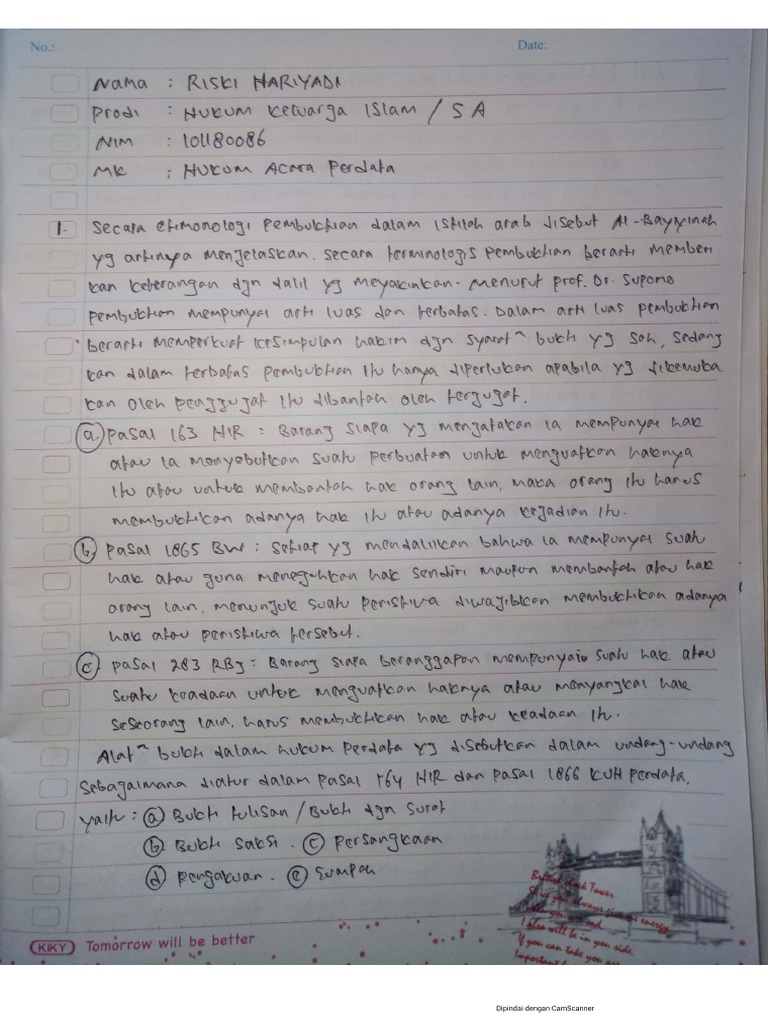 No.: Date:
Nama : RISKI HARIYADI
Prodi : Hukum Keluarga Islam / 5A
NIM : 101180086
MK : Hukum Acara Perdata
1. Secara etimonologi pembuktian dalam istilah arab disebut Al-Bayyinah
yg artinya menjelaskan. secara terminologis pembuktian berarti memberi
kan keterangan dgn dalil yg meyakinkan. menurut prof. Dr. Supomo
pembuktian mempunyai arti luas dan terbatas. Dalam arti luas pembuktian
berarti memperkuat kesimpulan hakim dgn syarat" bukti yg sah, sedang
kan dalam terbatas pembuktian itu hanya diperlukan apabila yg dikemuka
kan oleh penggugat itu dibantah oleh tergugat.
a. pasal 163 HIR : Barang siapa yg mengatakan ia mempunyai hak
atau ia menyebutkan suatu perbuatan untuk menguatkan haknya
itu atau untuk membantah hak orang lain, maka orang itu harus
membuktikan adanya hak itu atau adanya kejadian itu.
b. pasal 1865 BW : setiap yg mendalilkan bahwa ia mempunyai suatu
hak atau guna meneguhkan hak sendiri maupun membantah atau hak
orang lain, menunjuk suatu peristiwa diwajibkan membuktikan adanya
hak atau peristiwa tersebut.
c. pasal 283 RBg : Barang siapa beranggapan mempunyai suatu hak atau
suatu keadaan untuk menguatkan haknya atau menyangkal hak
seseorang lain, harus membuktikan hak atau keadaan itu.
Alat" bukti dalam hukum perdata yg disebutkan dalam undang-undang
sebagaimana diatur dalam pasal 164 HIR dan pasal 1866 KUH perdata,
yaitu : a Bukti tulisan / Bukti dgn surat
b. Bukti saksi. c persangkaan
d pengakuan. e sumpah
British Clock Tower
If you can take you are
KIKY Tomorrow will be better
Dipindai dengan CamScanner